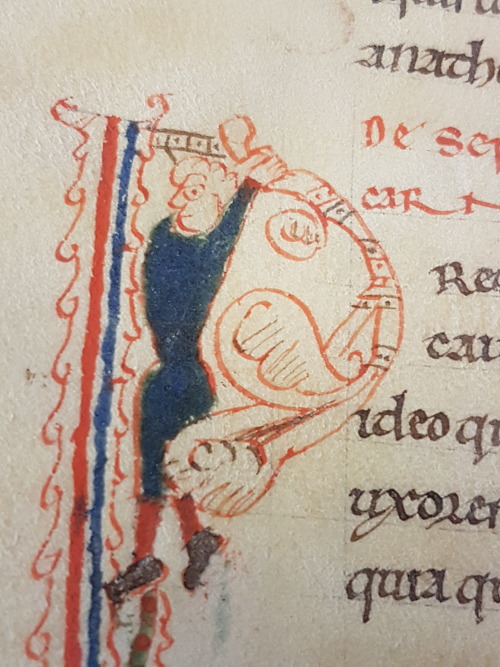 anath
De Sep
car
Rec
cau
ideo qu
uxorem
quia qu